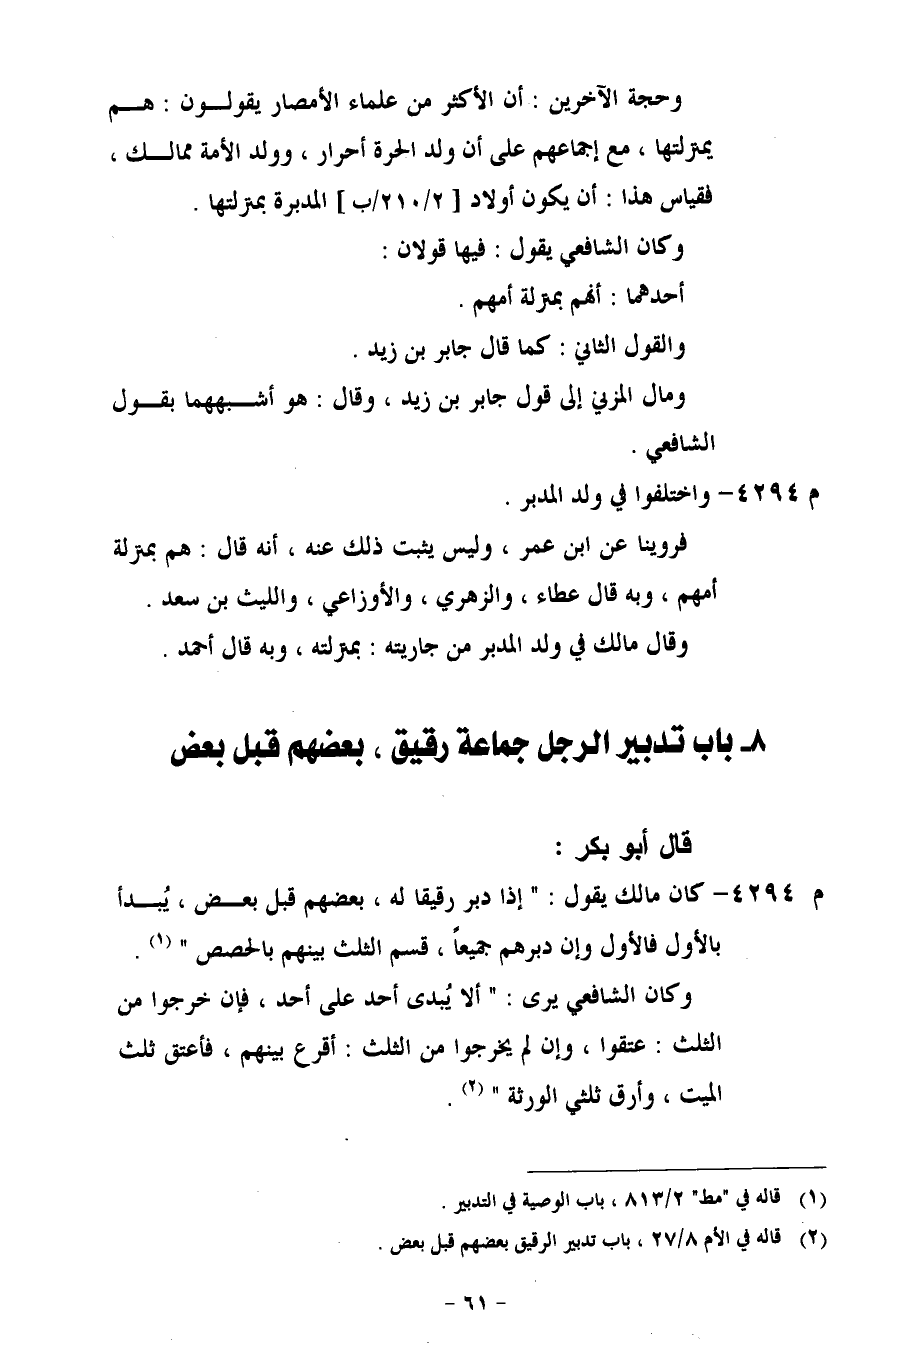 وحجة الآخرين : أن الأكثر من علماء الأمصار يقولـون : هـم
بمنزلتها ، مع إجماعهم على أن ولد الحرة أحرار ، وولد الأمة ممالـك ،
فقياس هذا : أن يكون أولاد [ ٢/٢١٠/ب ] المدبرة بمنزلتها .
وكان الشافعي يقول : فيها قولان :
أحدهما : أنهم بمنزلة أمهم .
والقول الثاني : كما قال جابر بن زيد .
ومال المزني إلى قول جابر بن زيد ، وقال : هو أشـبههما بقـول
الشافعي .
م ٤٢٩٤- واختلفوا في ولد المدبر .
فروينا عن ابن عمر ، وليس يثبت ذلك عنه ، أنه قال : هم بمنزلة
أمهم ، وبه قال عطاء ، والزهري ، والأوزاعي ، والليث بن سعد .
وقال مالك في ولد المدبر من جاريته : بمنزلته ، وبه قال أحمد .
٨ـ باب تدبير الرجل جماعة رقيق ، بعضهم قبل بعض
قال أبو بكر :
م ٤٢٩٤- كان مالك يقول : " إذا دبر رقيقا له ، بعضهم قبل بعـض ، يُبـدأ
بالأول فالأول وإن دبرهم جميعاً ، قسم الثلث بينهم بالحصص " (١) .
وكان الشافعي يرى : " ألا يُبدى أحد على أحد ، فإن خرجوا من
الثلث : عتقوا ، وإن لم يخرجوا من الثلث : أقرع بينهم ، فأعتق ثلث
الميت ، وأرق ثلثي الورثة " (٢) .
(١) قاله في "مط" ٨١٣/٢ ، باب الوصية في التدبير .
(٢) قاله في الأم ٢٧/٨ ، باب تدبير الرقيق بعضهم قبل بعض .
- ٦١ -